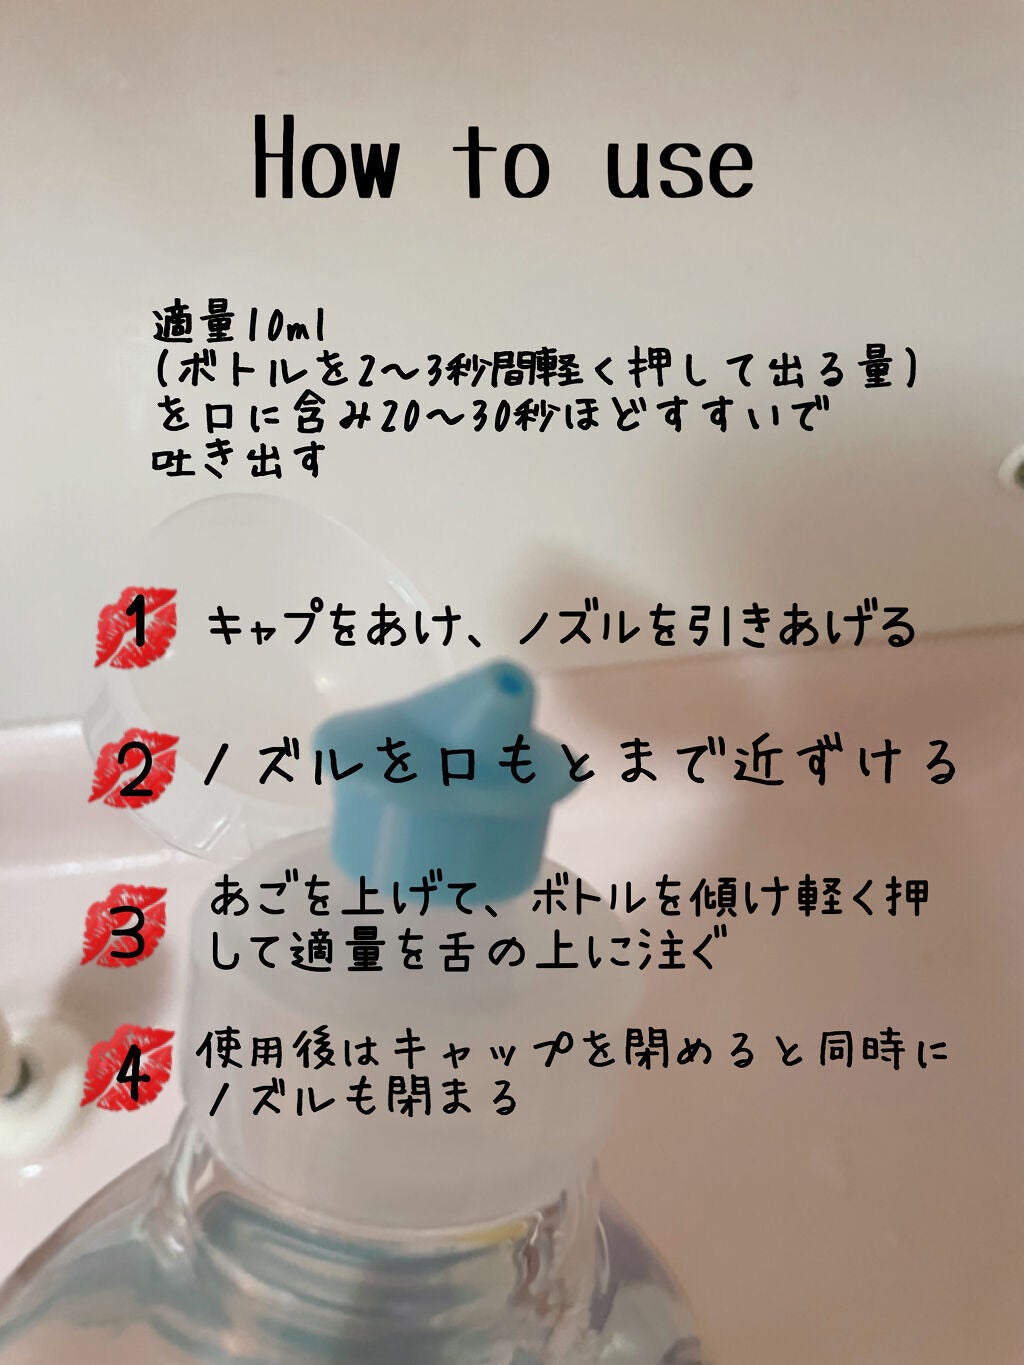 How to use
適量10ml
(ボトルを2〜3秒間軽く押して出る量)
を口に含み20〜30秒ほどすすいで
吐き出す
1 キャプをあけ、ノズルを引きあげる
2 ノズルを口もとまで近ずける
3 あごを上げて、ボトルを傾け軽く押
して適量を舌の上に注ぐ
4 使用後はキャップを閉めると同時に
ノズルも閉まる